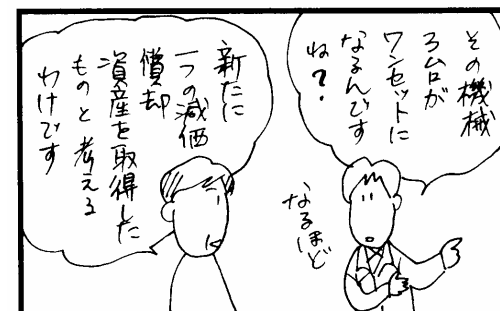 その機械
ろムロが
ワンセットに
なるんです
ね？
なるほど
新たに
一つの減価
償却
資産を取得した
ものと考える
わけです